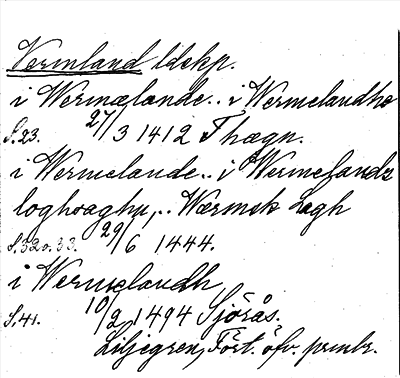 Vermland ldskp.
i Wermælande.. i Wermelandhe
S. 23. 27/3 1412 Thægn.
i Wermelande.. i Wermelandz
loghsaghu,.. Wærmsk Lagh
S. 32 o. 33. 29/6 1444.
i Wermelandh
S. 41. 10/2 1494 Sjörås.
Liljegren, Fört. öfv. prmbr.